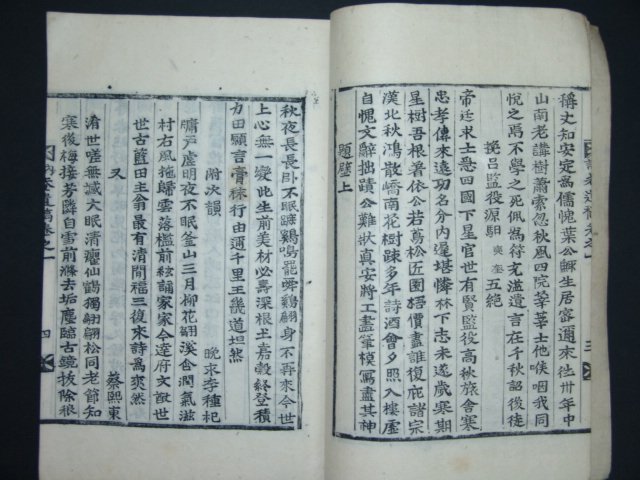 稱丈知安定為儒愧葉公歸生居密邇來往卅年中
山南老講樹蕭索忽秋風四院莘莘士他喉咽我同
悅之為不學之死佩為符充溢遺言在千秋詔後徒
挽呂監役源馹 奭奎 五絶
帝廷求士悉四國下星官世有賢監役高秋旅舍寒
忠孝傳來遠功名分內遲堪憐林下志未遂歲寒期
星樹吾根着依公若蔦松匠園梧價盡誰復庇諸宗
漢北秋鴻散嶠南花樹踈多年詩酒會夕照入樓虛
自愧文辭拙蹟公難狀真安將工畫筆模寫盡其神
題壁上
三
秋夜長長卧不眠鷄鳴罷舜鷄翻身不再來今世
上心無一變此生前美材必壽深根土嘉穀終登積
力田願言膏秣行由邇千里王畿道坦然
附次韻 晚求李種杞
牗戶虛明夜不眠釜山三月柳花翩溪含潤氣滋
村右風拖歸雲落檻前絃誦家家今達府文謚世
世古籃田主翁最有清閒福三復來詩爲爽然
又 蔡熙東
清世嗟無減大眠清癯仙鶴獨翩翩松同老節知
寒後梅接芳隣自雪前滌去垢塵臨古鏡拔除根
訥菴遺稿卷之一
四